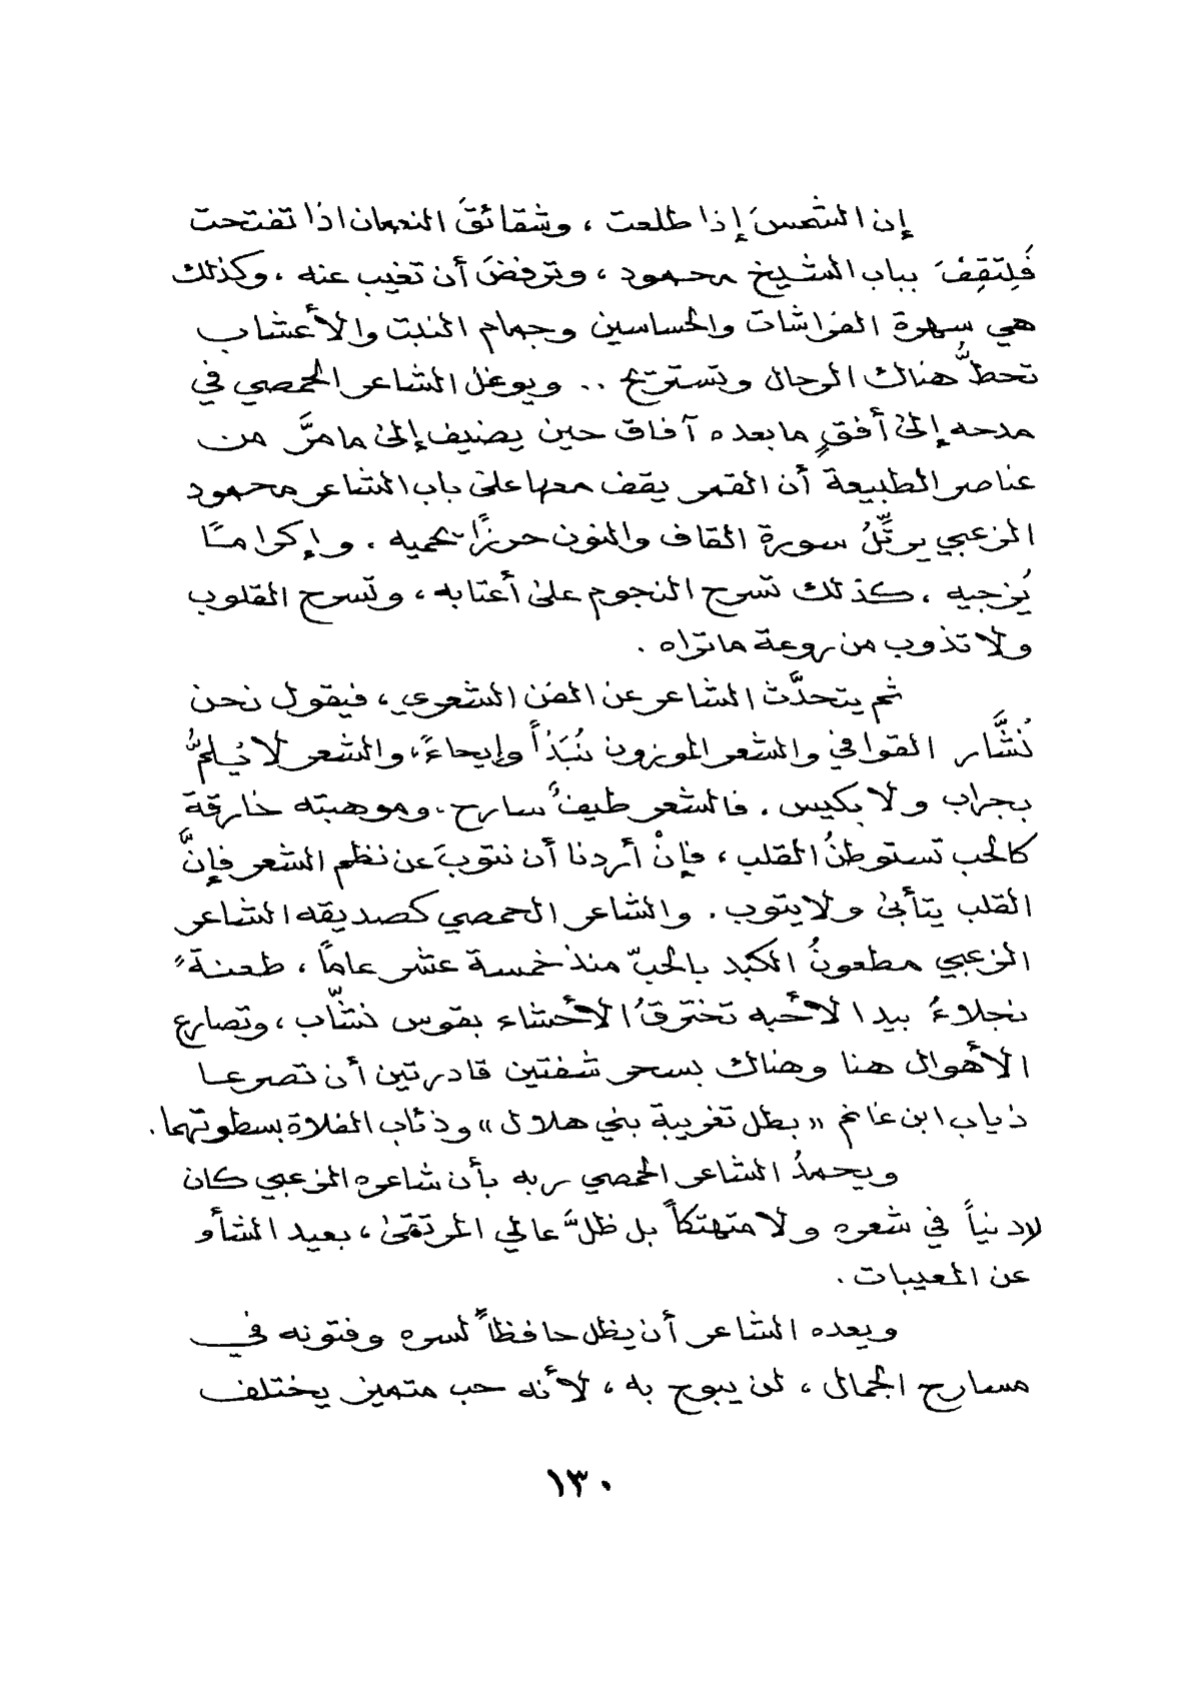 إن الشمسَ إذا طلعت ، وشقائقَ النعمان اذا تفتحت
فَلِتَقِفْ بباب الشيخ محمود ، وترفضَ أن تغيب عنه ، وكذلك
هي سهرة الفراشات والحساسين وجمام النبت والأعشاب
تحطُّ هناك الرحال وتستريح .. ويوغل الشاعر الحمصي في
مدحه إلىٰ أفقٍ ما بعده آفاق حين يضيف إلىٰ ما مرَّ من
عناصر الطبيعة أن القمر يقف معها علىٰ باب الشاعر محمود
الزعبي يرتِّلُ سورة القاف والنون حرزاً يحميه ، وإكرامًا
يُزجيه ، كذلك تسرح النجوم علىٰ أعتابه ، وتسرح القلوب
ولا تذوب من روعة ما تراه .
ثم يتحدَّث الشاعر عن الفن الشعري ، فيقول نحن
نُشَّار القوافي والشعر الموزون نُبَذاً وإيحاءً ، والشعر لا يُلمُّ
بجراب ولا بكيس . فالشعر طيفٌ سارح ، وموهبته خارقة
كالحب تستوطنُ القلب ، فإنْ أردنا أن نتوبَ عن نظم الشعر فإنَّ
القلب يتأبىٰ ولا يتوب . والشاعر الحمصي كصديقه الشاعر
الزعبي مطعونُ الكبد بالحبّ منذ خمسة عشر عاماً ، طعنةً
نجلاءُ بيد الأحبه تخترقُ الأحشاء بقوس نشّاب ، وتصارع
الأهوال هنا وهناك بسحر شفتين قادرتين أن تصرعا
ذياب ابن غانم « بطل تغريبة بني هلال » وذئاب الفلاة بسطوتهما .
ويحمدُ الشاعر الحمصي ربه بأن شاعره الزعبي كان
لا دنياً في شعره ولا متهتكاً بل ظلَّ عالي المرتقىٰ ، بعيد الشأو
عن المعيبات .
ويعده الشاعر أن يظل حافظاً لسره وفتونه في
مسارح الجمال ، لن يبوح به ، لأنه حب متميز يختلف
١٣٠